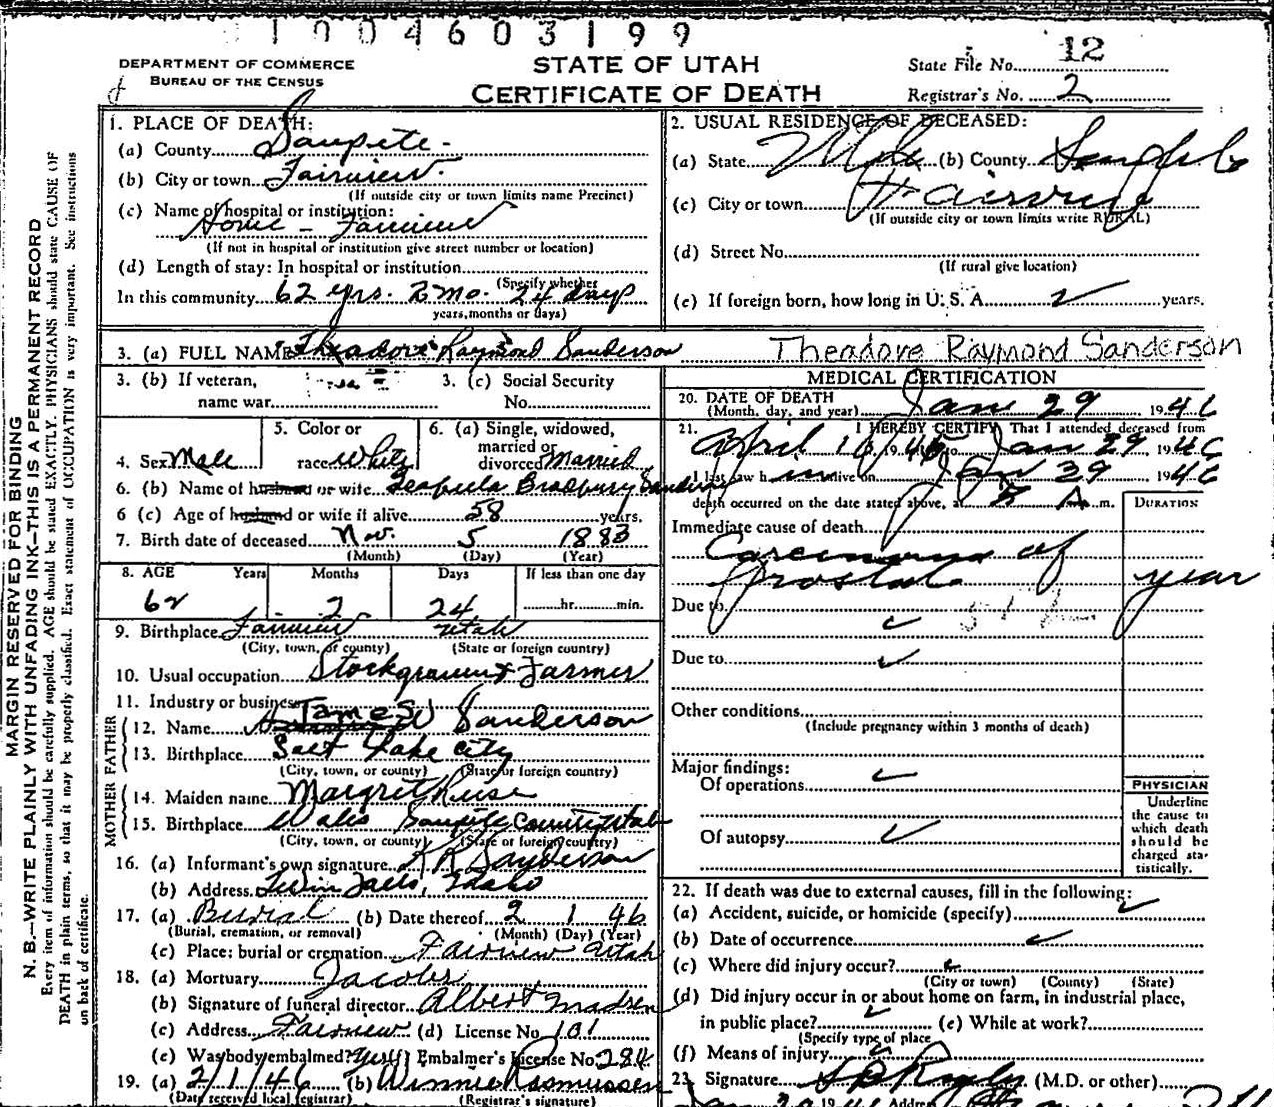 1004603199
DEPARTMENT OF COMMERCE
BUREAU OF THE CENSUS
STATE OF UTAH
CERTIFICATE OF DEATH
State File No. 12
Registrar's No. 2
MARGIN RESERVED FOR BINDING
N. B.—WRITE PLAINLY WITH UNFADING INK—THIS IS A PERMANENT RECORD
Every item of information should be carefully supplied. AGE should be stated EXACTLY. PHYSICIANS should state CAUSE OF
DEATH in plain terms, so that it may be properly classified. Exact statement of OCCUPATION is very important. See instructions
on back of certificate.
1. PLACE OF DEATH:
(a) County Sanpete
(b) City or town Fairview
(If outside city or town limits name Precinct)
(c) Name of hospital or institution:
Home - Fairview
(If not in hospital or institution give street number or location)
(d) Length of stay: In hospital or institution
(Specify whether
In this community 62 yrs. 2 mo. 24 days
years, months or days)
2. USUAL RESIDENCE OF DECEASED:
(a) State Utah (b) County Sanpete
(c) City or town Fairview
(If outside city or town limits write RURAL)
(d) Street No.
(If rural give location)
(e) If foreign born, how long in U. S. A. years.
3. (a) FULL NAME Theadore Raymond Sanderson Theadore Raymond Sanderson
3. (b) If veteran,
name war
3. (c) Social Security
No.
4. Sex Male
5. Color or
race White
6. (a) Single, widowed,
married or
divorced Married
6. (b) Name of husband or wife Bradbury
6 (c) Age of husband or wife if alive 58 years.
7. Birth date of deceased Nov. 5 1883
(Month) (Day) (Year)
8. AGE Years Months Days If less than one day
62 2 24 hr. min.
9. Birthplace Fairview Utah
(City, town, or county) (State or foreign country)
10. Usual occupation Farmer
11. Industry or business
FATHER
12. Name James W Sanderson
13. Birthplace Salt Lake City
(City, town, or county) (State or foreign country)
MOTHER
14. Maiden name Margret
15. Birthplace Wales Sanpete County Utah
(City, town, or county) (State or foreign country)
16. (a) Informant's own signature Sanderson
(b) Address Twin Falls, Idaho
17. (a) Burial (b) Date thereof 2 1 46
(Burial, cremation, or removal) (Month) (Day) (Year)
(c) Place: burial or cremation Fairview Utah
18. (a) Mortuary Jacobs
(b) Signature of funeral director Albert Madsen
(c) Address Fairview (d) License No. 101
(e) Was body embalmed? Yes (f) Embalmer's License No. 284
19. (a) 2/1/46 (b) Winnie Rasmussen
(Date received local registrar) (Registrar's signature)
MEDICAL CERTIFICATION
20. DATE OF DEATH
(Month, day, and year) Jan 29, 1946
21. I HEREBY CERTIFY, That I attended deceased from
April 1945 to Jan 29 1946
I last saw him alive on Jan 29 1946
death occurred on the date stated above, at A. m.
DURATION
Immediate cause of death
Carcinoma of
Prostate year
Due to
Due to
Other conditions
(Include pregnancy within 3 months of death)
Major findings:
Of operations
Of autopsy
PHYSICIAN
Underline
the cause to
which death
should be
charged sta-
tistically.
22. If death was due to external causes, fill in the following:
(a) Accident, suicide, or homicide (specify)
(b) Date of occurrence
(c) Where did injury occur?
(City or town) (County) (State)
(d) Did injury occur in or about home on farm, in industrial place,
in public place? (e) While at work?
(Specify type of place
(f) Means of injury
23. Signature (M.D. or other)